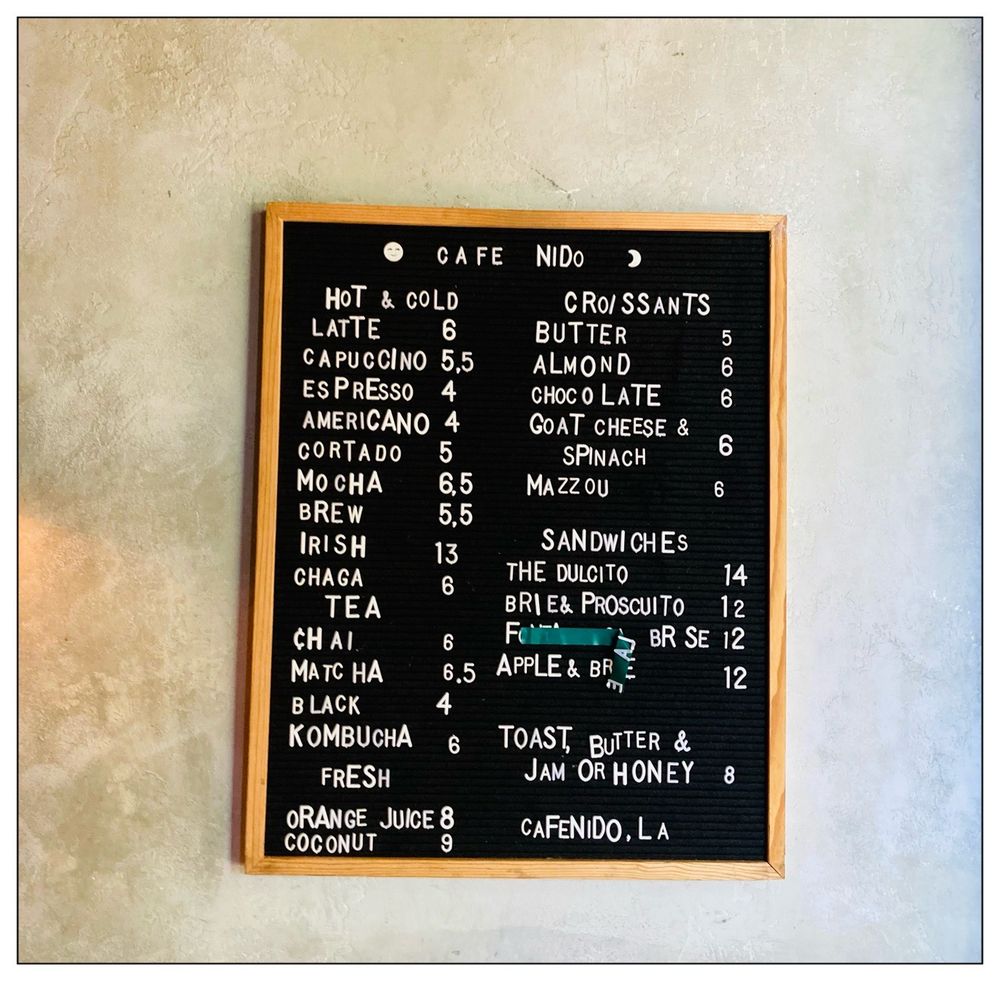 CAFE NIDO
HOT & COLD
LATTE 6
CAPUCCINO 5,5
ESPRESSO 4
AMERICANO 4
CORTADO 5
MOCHA 6,5
BREW 5,5
IRISH 13
CHAGA 6
TEA
CHAI 6
MATCHA 6.5
BLACK 4
KOMBUCHA 6
FRESH
ORANGE JUICE 8
COCONUT 9
CROISSANTS
BUTTER 5
ALMOND 6
CHOCOLATE 6
GOAT CHEESE &
SPINACH 6
MAZZOU 6
SANDWICHES
THE DULCITO 14
BRIE & PROSCUITO 12
BR SE 12
APPLE & 12
TOAST, BUTTER &
JAM OR HONEY 8
CAFENIDO, LA